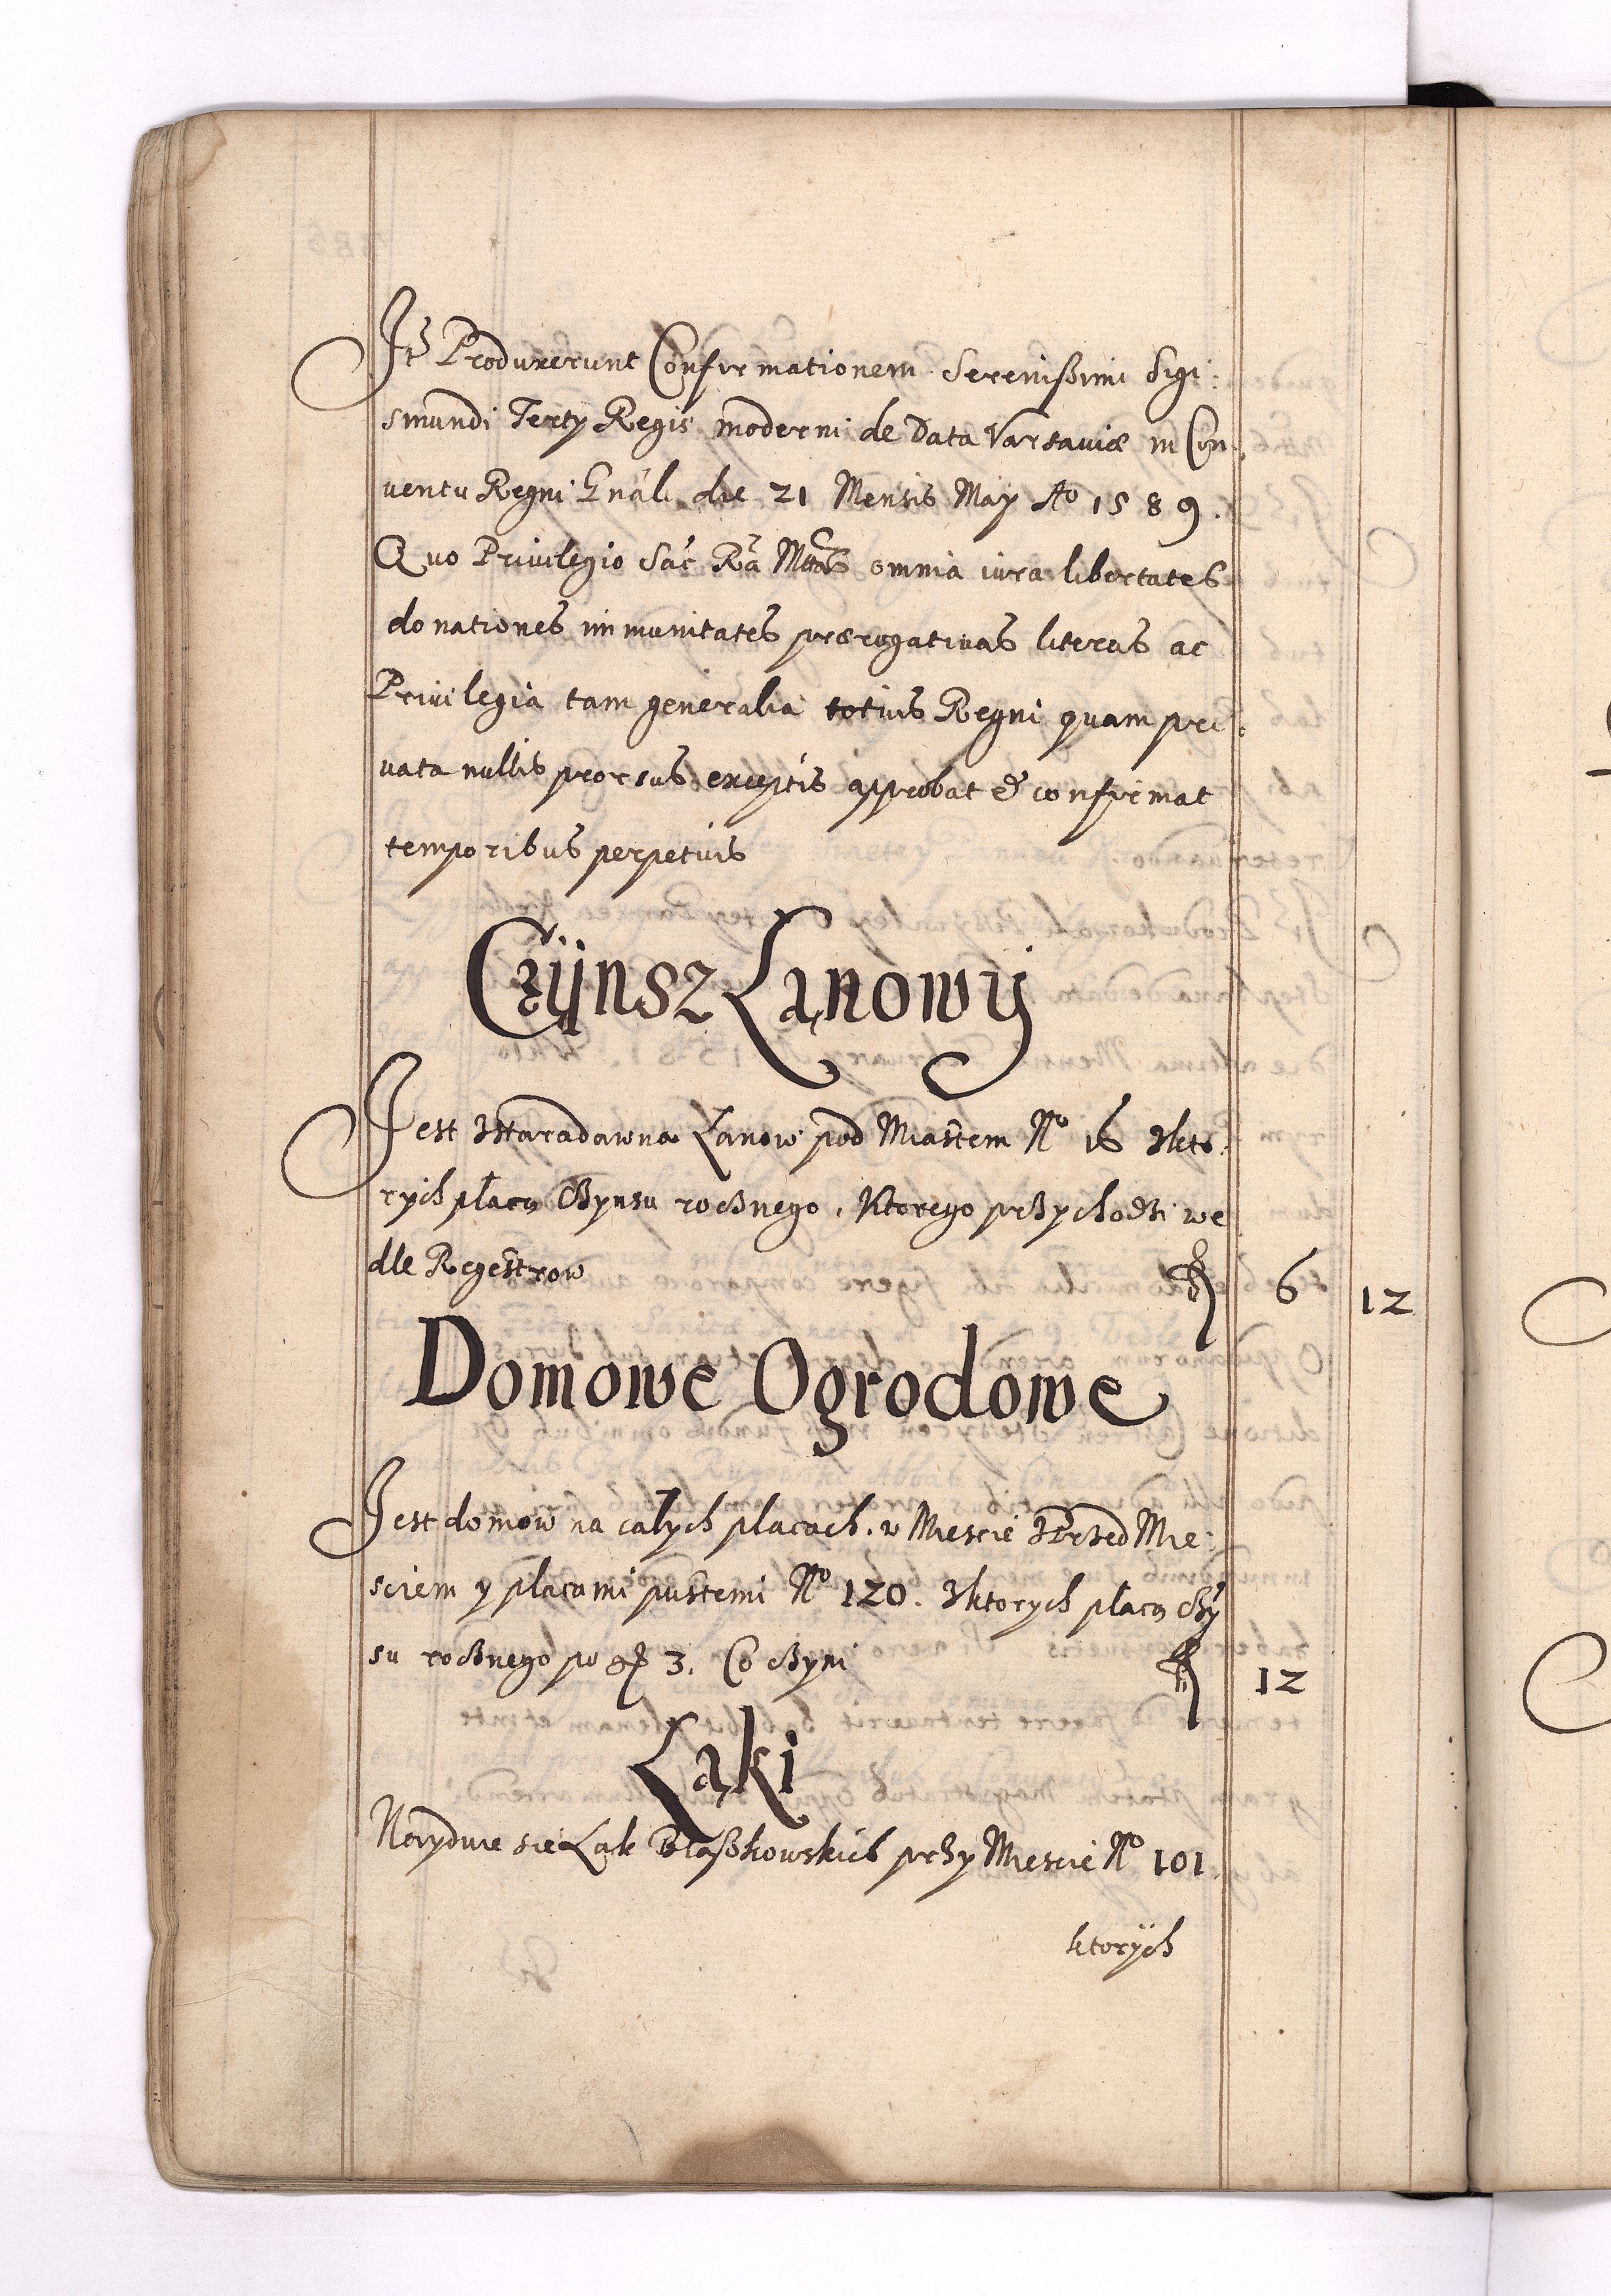 It3 Produxerunt Confirmationem Serenißimi Sigi:
smundi Terty Regis moderni de Data Varsauiæ in Con:
uentu Regni Gnãl. die 21 Mensis May Aº 1589.
Quo Priuilegio Sac Ra Mttas omnia iura libertates
donationes immunitates prærogatiuas literas ac
Priuilegia tam generalia totius Regni quam pri:
uata nullis prorsus exceptis approbat & confirmat
temporibus perpetuis
Czÿnsz Łanowÿ
Jest zstaradawna Łanow pod Miastem Nº 16 zkto:
rych płacą Czynsu rocznego, Ktorego przychodzi we
dle Regestrow fl 6 12
Domowe Ogrodowe
Jest domow na całych placach. w Miescie zPrzed Mie:
sciem y placami pustemi Nº 120. zktorych płacą Czÿ
su rocznego po gr 3. Co czyni fl 12
Łąki
Nayduie sie Łąk Błaszkowskich przy Miescie Nº 101.
ktorÿch